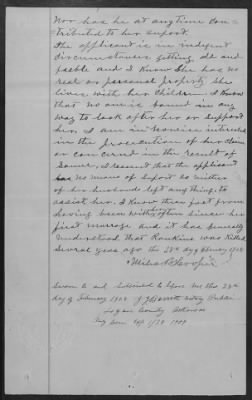 Nor has he at any time con-
tributed to her suport.
The applicant is in indigent
circumstances getting old and
feeble and I Know She has no
real or personal property She
lives with her Children. I Know
that no one is bound in any
way to look after her or support
her. I am in nowise intrested
in the prosecution of her claim
or concerned in the result of
Same, I reassert that the applicant
has no means of suport as neither
of her husbands left any thing to
assist her. I Know these fact from
having been with her often since her
first marriage and it has generally
understood that Rankins was Killed
Several years ago this 28th day of February 1908
Sworn to and Subscribed to before me this 28th
day of February 1908 Notary Public
Logan County Arkansas